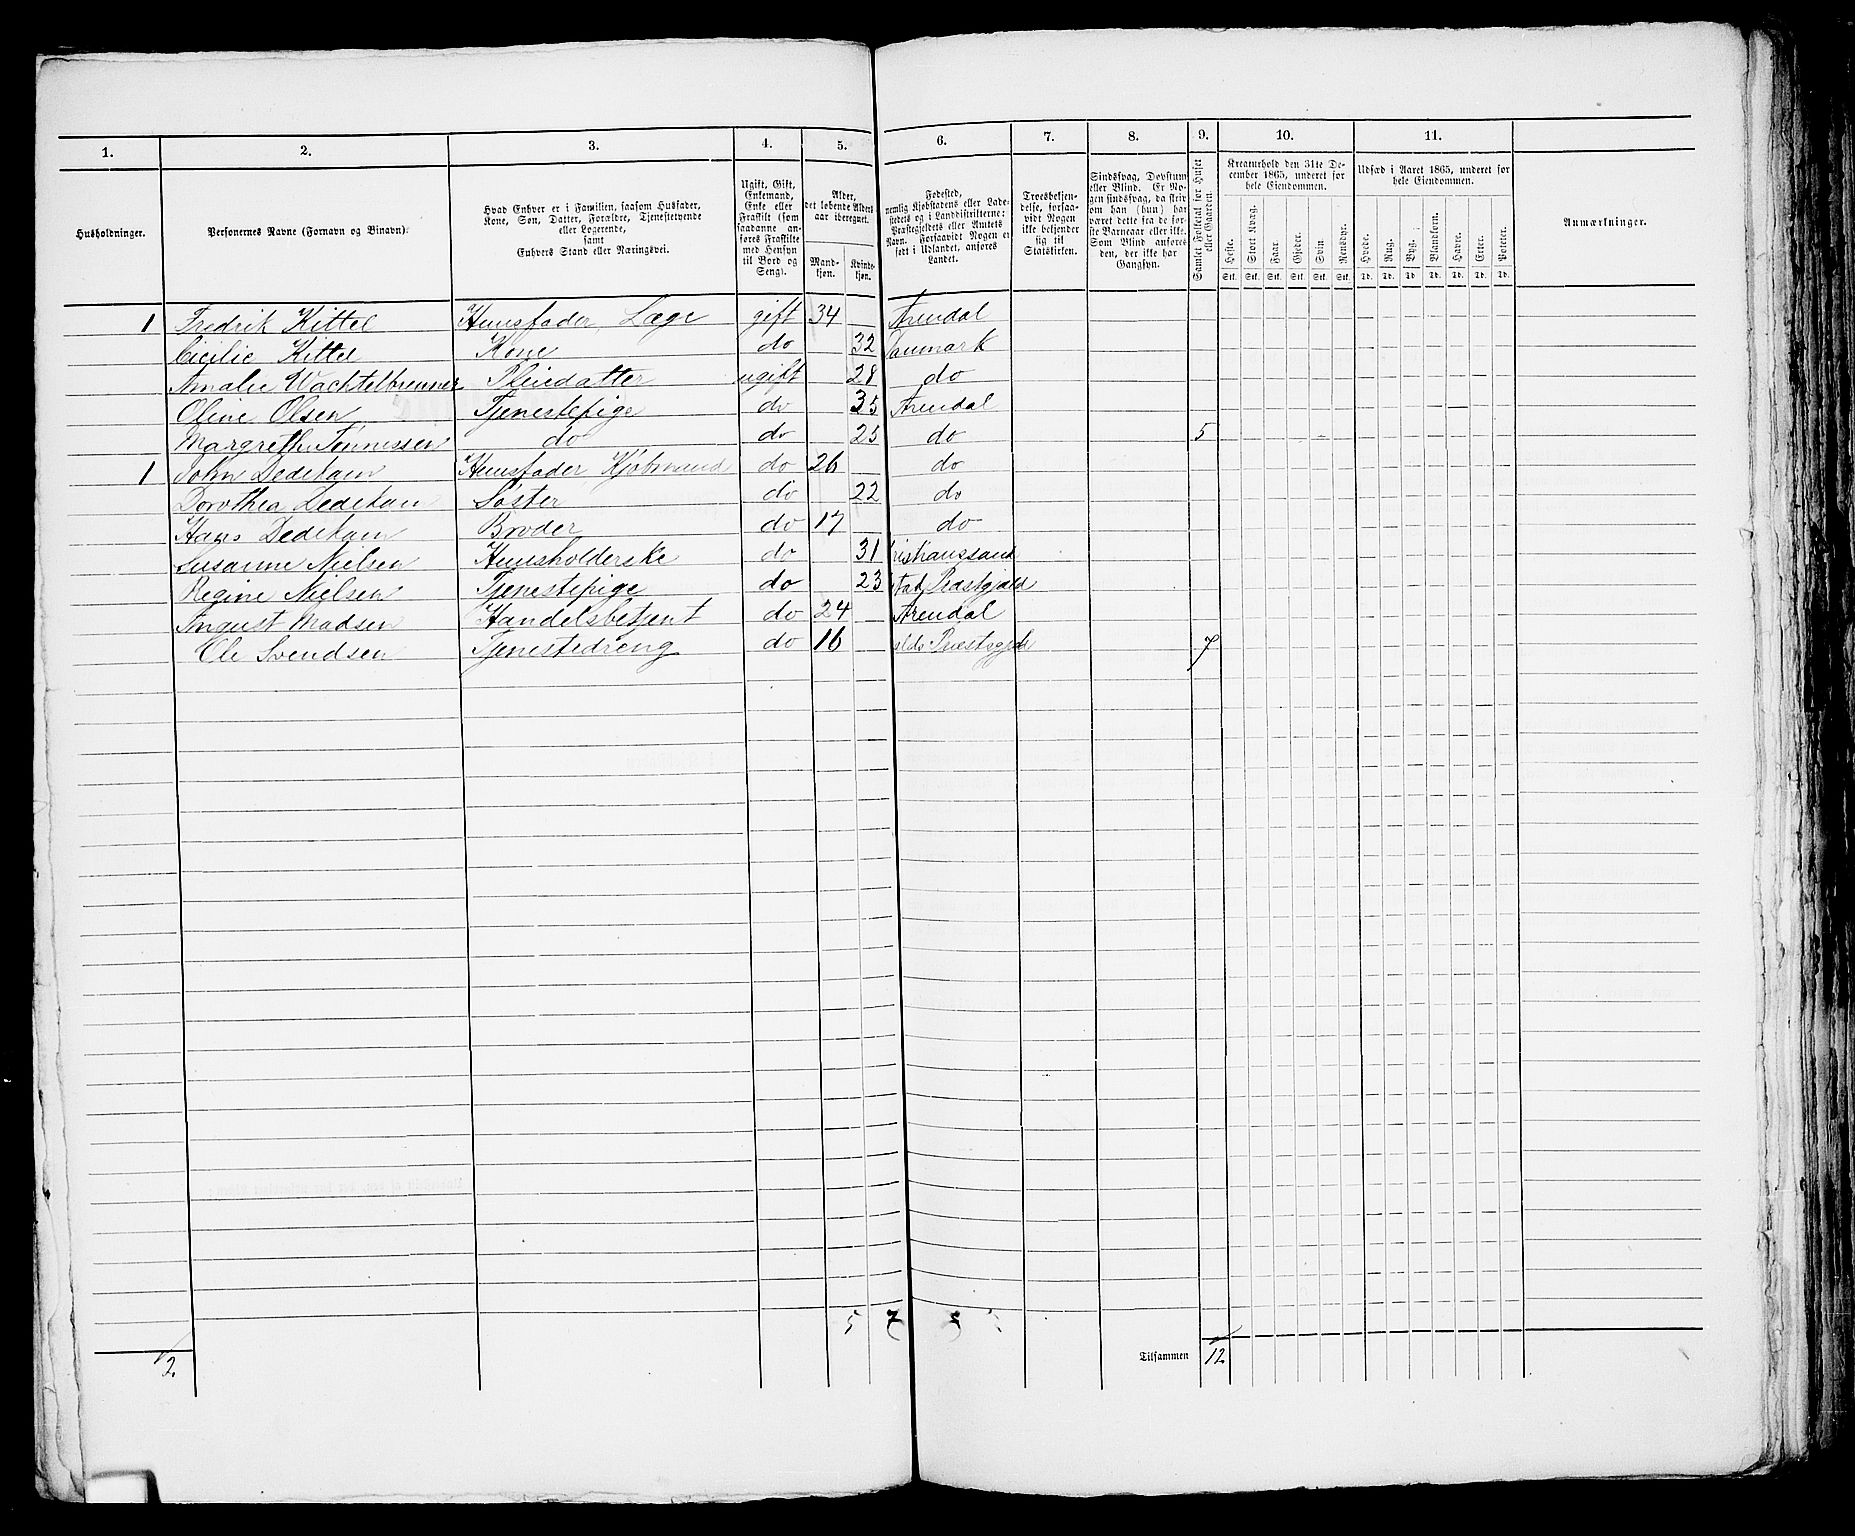 1. 2. 3. 4. 5. 6. 7. 8. 9. 10. 11.
Husholdninger.
Personernes Navne (Fornavn og Binavn).
Hvad Enhver er i Familien, saasom Husfader,
Kone, Søn, Datter, Forældre, Tjenestetyende
eller Logerende,
samt
Enhvers Stand eller Næringsvei.
Ugift, Gift,
Enkemand,
Enke eller
Fraskilt (som
saadanne an-
føres Fraskilte
med Hensyn
til Bord og
Seng).
Alder,
det løbende Alders-
aar iberegnet.
Mand-
kjøn.
Kvinde-
kjøn.
Fødested,
nemlig Kjøbstadens eller Lade-
stedets og i Landdistrikterne:
Præstegjeldets eller Amtets
Navn. Forsaavidt Nogen er
født i Udlandet, anføres
Landet.
Troesbekjen-
delse, forsaa-
vidt Nogen
ikke bekjender
sig til
Statskirken.
Sindssvag, Døvstum
eller Blind. Er No-
gen sindssvag, da skriv
om han (hun) har
været dette fra de før-
ste Barneaar eller ikke.
Som Blind anføres
den, der ikke har
Gangsyn.
Samlet Folketal for Huset
eller Gaarden.
Kreaturhold den 31te De-
cember 1865, underet for
hele Eiendommen.
Heste. Stort Kvæg. Faar. Gjeder. Svin. Rensdyr.
Stk. Stk. Stk. Stk. Stk. Stk.
Udsæd i Aaret 1865, underet for
hele Eiendommen.
Hvede. Rug. Byg. Blandkorn. Havre. Erter. Poteter.
Td. Td. Td. Td. Td. Td. Td.
Anmærkninger.
1 Fredrik Kittel Huusfader, Læge gift 34 Arendal
Cicilie Kittel Kone do 32 Danmark
Amalie Wachtelbrenner Pleiedatter ugift 28 do
Oline Olsen Tjenestepige do 35 Arendal
Margrethe Tønnessen do do 25 do 5
1 John Dedekam Huusfader Kjøbmand do 26 do
Dorothea Dedekam Søster do 22 do
Hans Dedekam Broder do 17 do
Susanne Nielsen Huusholderske do 31 ristianssand
Regine Nielsen Tjenestepige do 23 Præstgjæld
August Madsen Handelsbetjent do 24 Arendal
Ole Svendsen Tjenestedreng do 16 Præstegjeld 7
5 7
2. Tilsammen 12